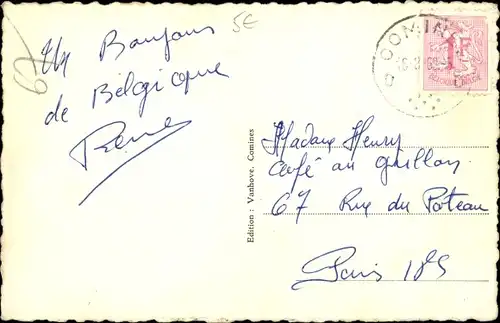 62
5€
Un Bonjour
de Belgique
René
COMIN
1F
Edition : Vanhove, Comines
Madame Henry
Café au Grillon
67 Rue du Poteau
Paris 18e